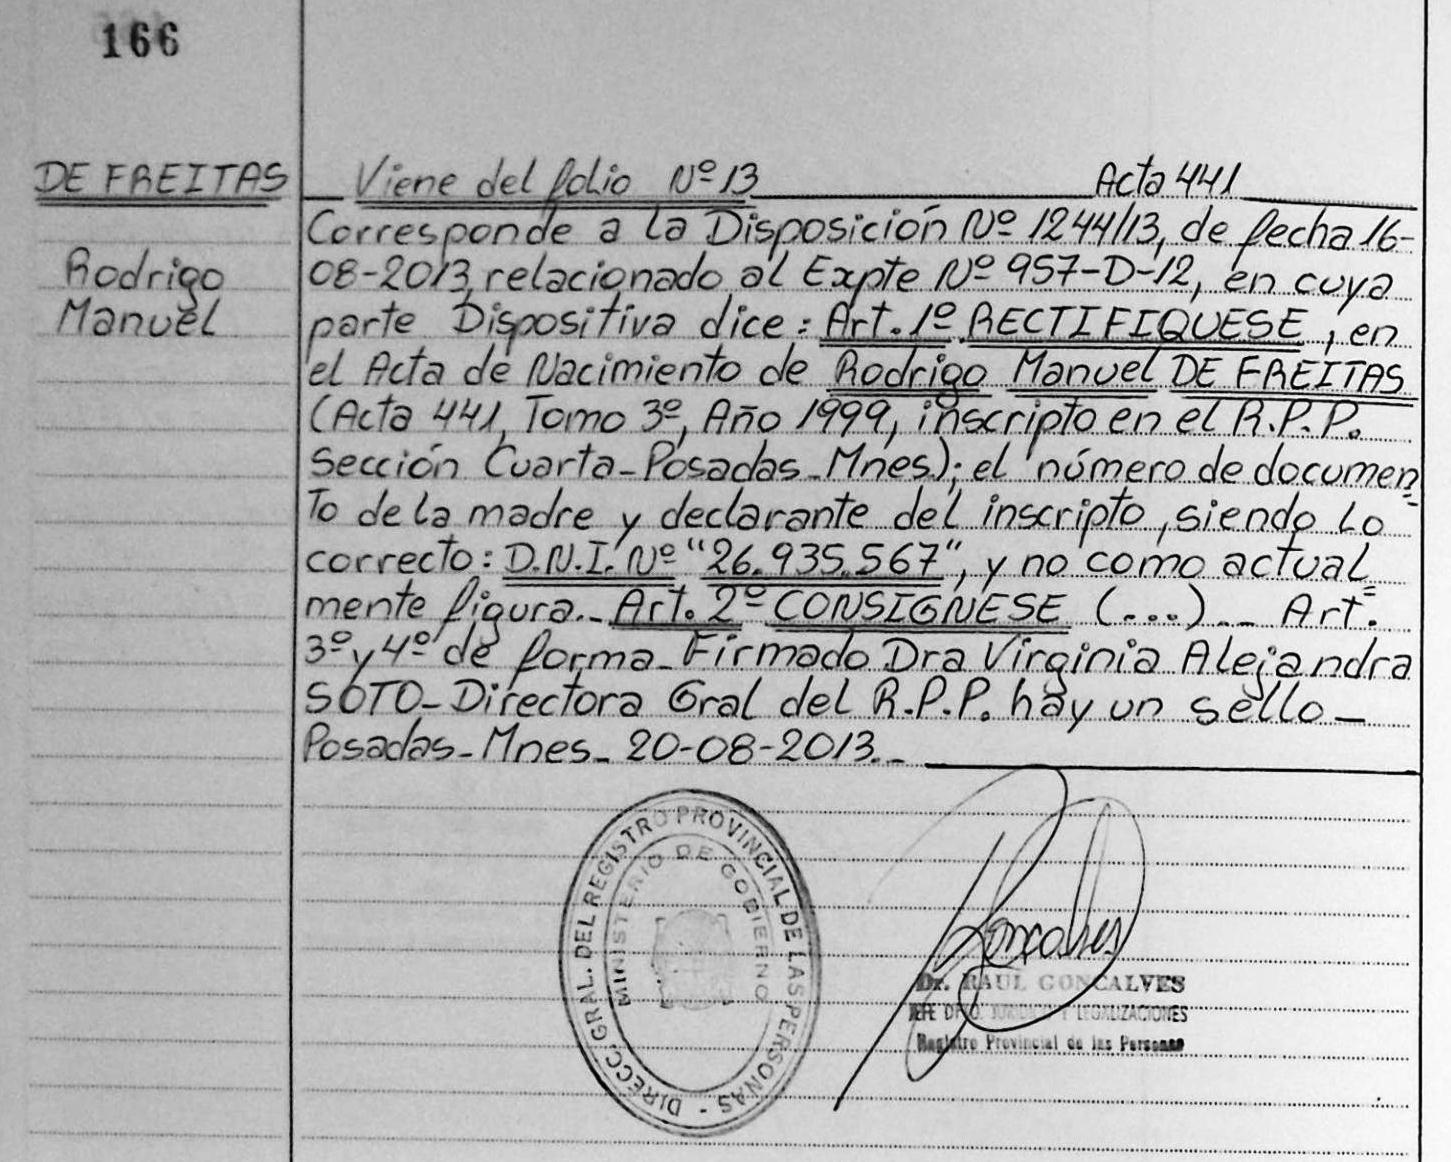 166
DE FREITAS
Rodrigo
Manuel
Viene del folio Nº 13 Acta 441
Corresponde a la Disposición Nº 1244/13, de fecha 16-
08-2013, relacionado al Expte Nº 957-D-12, en cuya
parte Dispositiva dice: Art. 1º RECTIFIQUESE, en
el Acta de Nacimiento de Rodrigo Manuel DE FREITAS
(Acta 441, Tomo 3º, Año 1999, inscripto en el R.P.P.
Sección Cuarta-Posadas-Mnes.); el número de documen=
to de la madre y declarante del inscripto, siendo lo
correcto: D.N.I. Nº "26.935.567", y no como actual=
mente figura.- Art. 2º CONSIGNESE (...)_ Art.
3º y 4º de forma-Firmado Dra Virginia Alejandra
SOTO-Directora Gral del R.P.P. hay un sello-
Posadas-Mnes- 20-08-2013.-
DIRECC. GRAL. DEL REGISTRO PROVINCIAL DE LAS PERSONAS -
MINISTERIO DE GOBIERNO
Dr. RAUL GONCALVES
JEFE DPTO. JURIDICO Y LEGALIZACIONES
Registro Provincial de las Personas